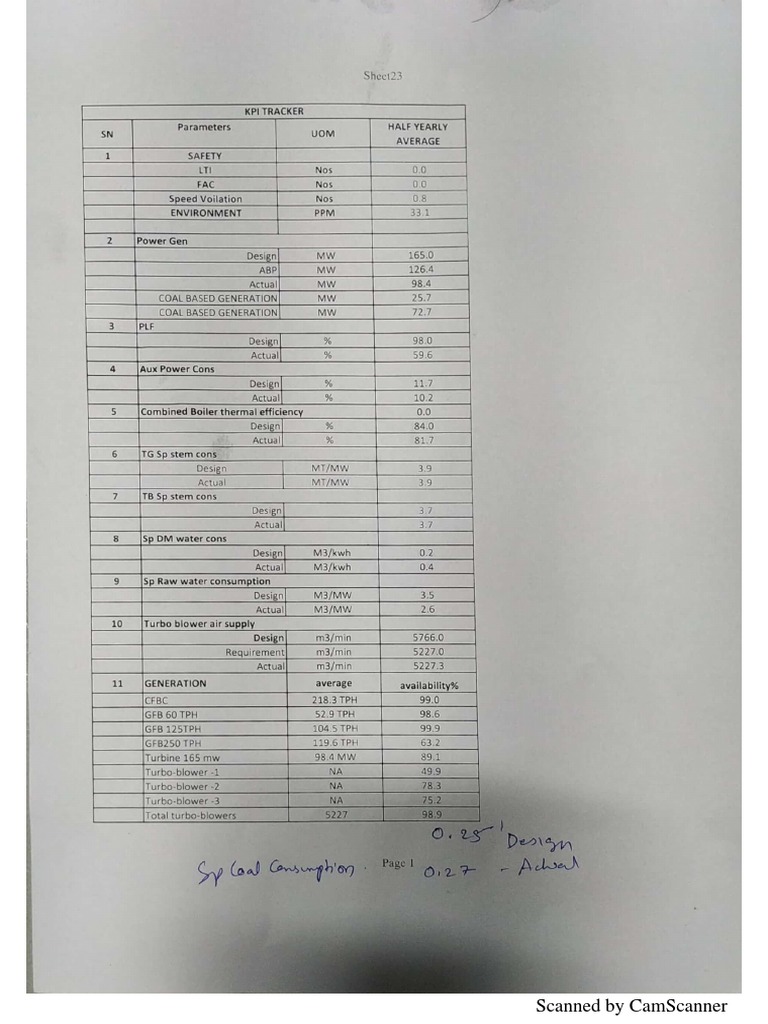 Sheet23
KPI TRACKER
SN Parameters UOM HALF YEARLY AVERAGE
1 SAFETY
LTI Nos 0.0
FAC Nos 0.0
Speed Voilation Nos 0.8
ENVIRONMENT PPM 33.1
2 Power Gen
Design MW 165.0
ABP MW 126.4
Actual MW 98.4
COAL BASED GENERATION MW 25.7
COAL BASED GENERATION MW 72.7
3 PLF
Design % 98.0
Actual % 59.6
4 Aux Power Cons
Design % 11.7
Actual % 10.2
5 Combined Boiler thermal efficiency 0.0
Design % 84.0
Actual % 81.7
6 TG Sp stem cons
Design MT/MW 3.9
Actual MT/MW 3.9
7 TB Sp stem cons
Design 3.7
Actual 3.7
8 Sp DM water cons
Design M3/kwh 0.2
Actual M3/kwh 0.4
9 Sp Raw water consumption
Design M3/MW 3.5
Actual M3/MW 2.6
10 Turbo blower air supply
Design m3/min 5766.0
Requirement m3/min 5227.0
Actual m3/min 5227.3
11 GENERATION average availability%
CFBC 218.3 TPH 99.0
GFB 60 TPH 52.9 TPH 98.6
GFB 125TPH 104.5 TPH 99.9
GFB250 TPH 119.6 TPH 63.2
Turbine 165 mw 98.4 MW 89.1
Turbo-blower -1 NA 49.9
Turbo-blower -2 NA 78.3
Turbo-blower -3 NA 75.2
Total turbo-blowers 5227 98.9
0.25 Design
Sp Coal Consumption. Page 1 0.27 - Actual
Scanned by CamScanner